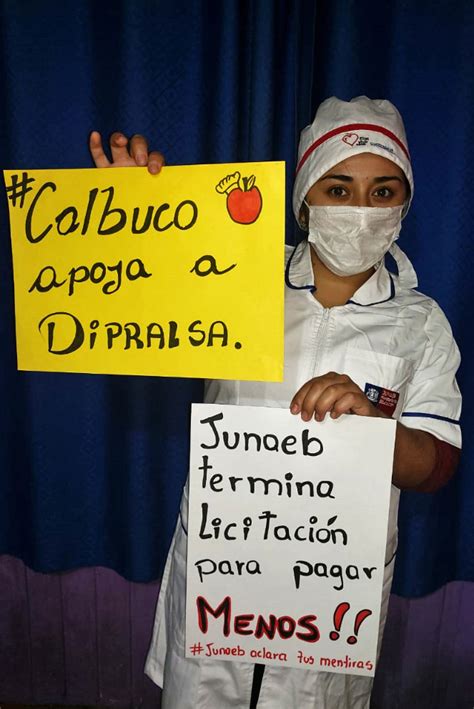 #Calbuco
apoya a
DIPRALSA.
Junaeb
termina
Licitación
para pagar
MENOS!!
#Junaeb aclara tus mentiras